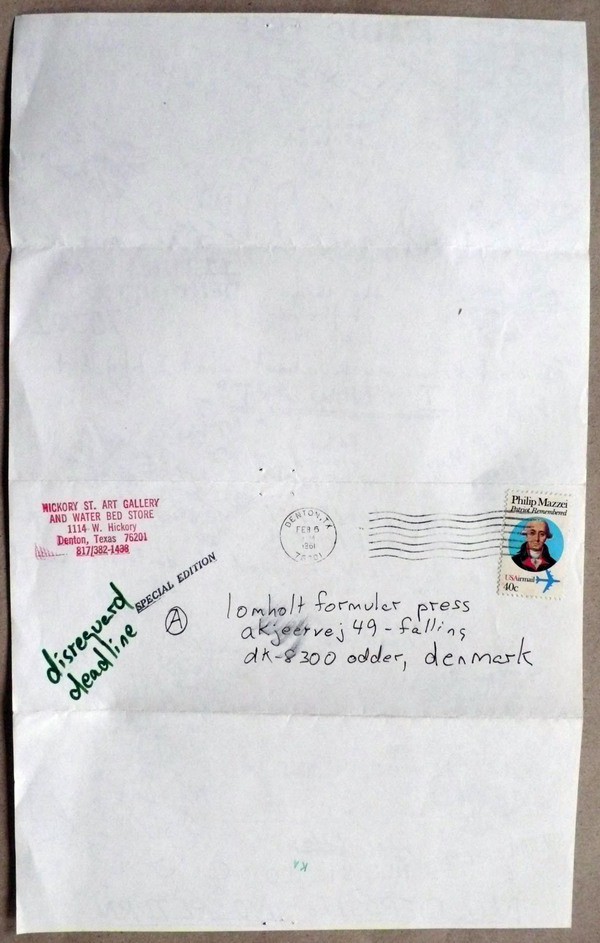 HICKORY ST. ART GALLERY
AND WATER BED STORE
1114 W. Hickory
Denton, Texas 76201
817/382-1438
DENTON, TX
FEB 6
1981
76201
Philip Mazzei
Patriot Remembered
USAirmail
40c
SPECIAL EDITION
A
disreguard
deadline
lomholt formular press
akjeervej 49-falling
dk-8300 odder, denmark